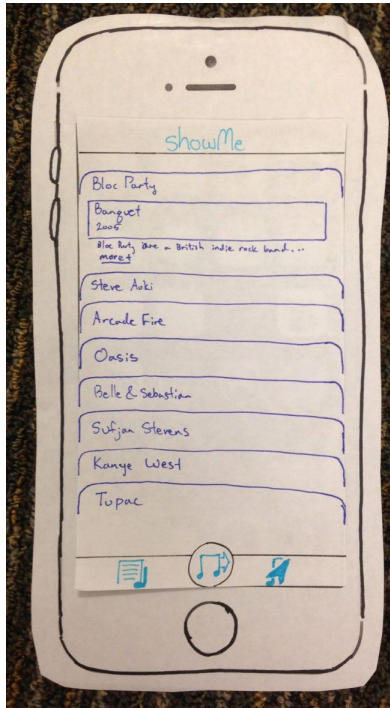 showMe
Bloc Party
Banquet
2005
Bloc Party are a British indie rock band...
more+
Steve Aoki
Arcade Fire
Oasis
Belle & Sebastian
Sufjan Stevens
Kanye West
Tupac